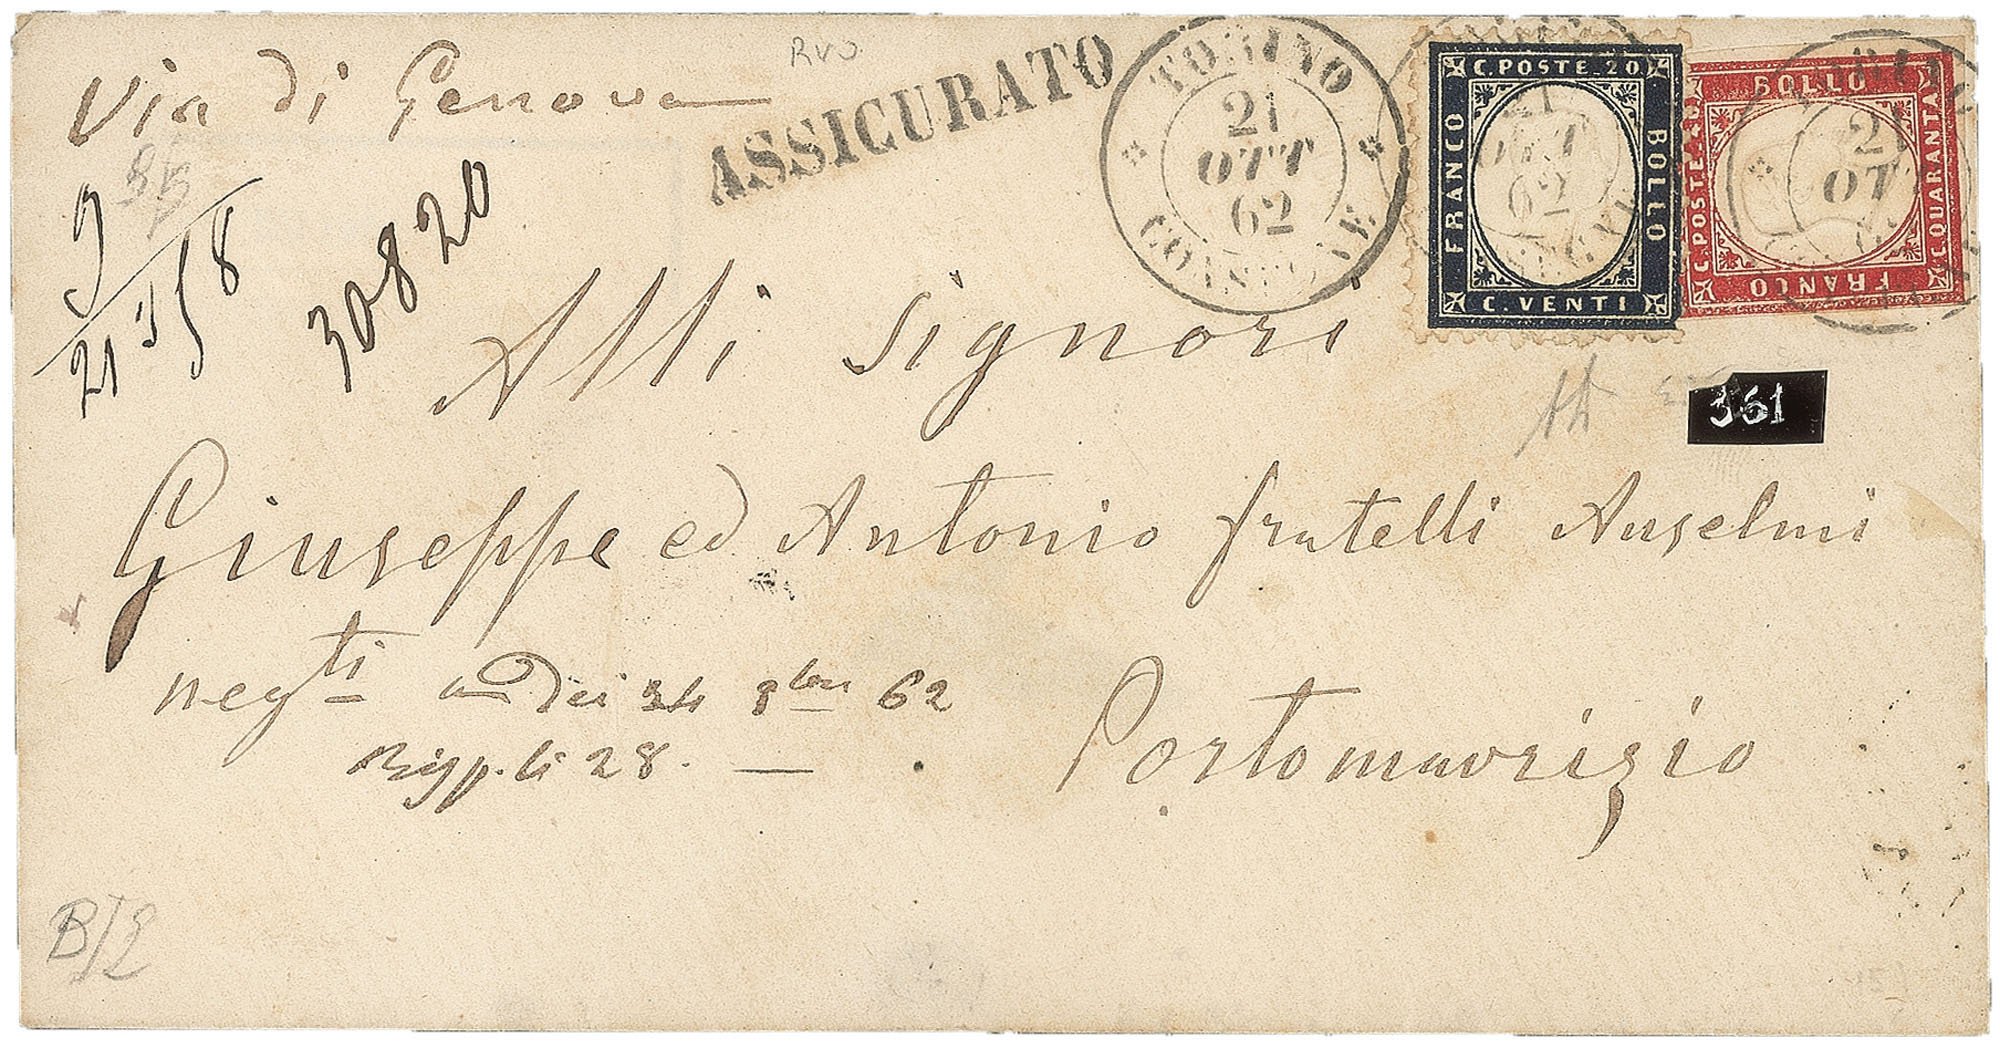 Via di Genova
RVO
ASSICURATO
TORINO
21
OTT
62
CONSEGNE
C. POSTE. 20
FRANCO
BOLLO
C. VENTI
21
OTT
62
BOLLO
C. POSTE 40
C. QUARANTA
FRANCO
21
OT
9
21
58
30820
Alli Signori
361
Giuseppe ed Antonio fratelli Anselmi
negti dei 24 8bre 62
Risp. li 28.
Portomaurizio